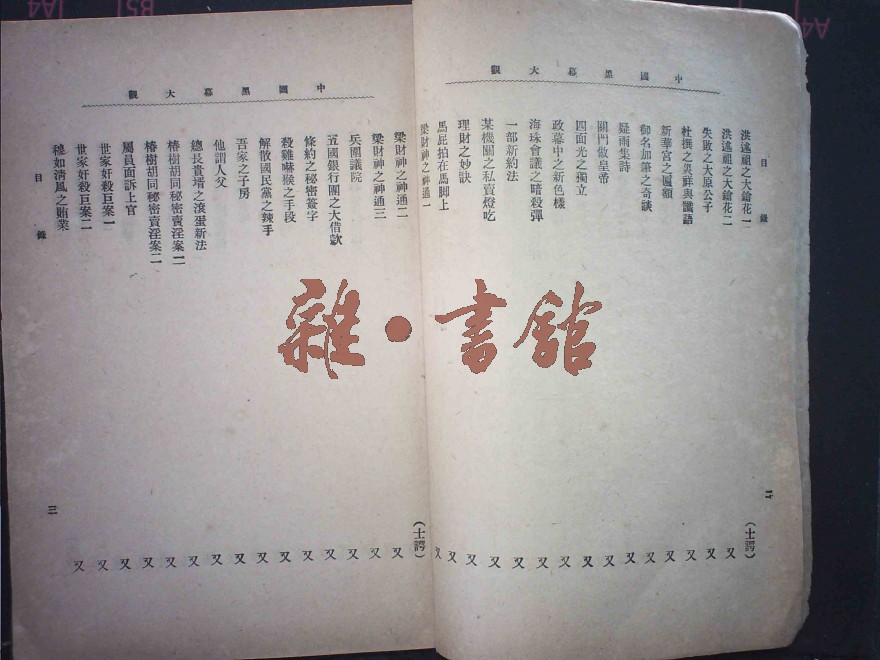 中國黑幕大觀
目 錄
洪述祖之大鎗花一 (士諤)
洪述祖之大鎗花二 又
失敗之大原公子 又
杜撰之災祥與讖語 又
新華宮之匾額 又
御名加筆之奇談 又
疑雨集詩 又
關門做皇帝 又
四面光之獨立 又
政幕中之新色樣 又
海珠會議之暗殺彈 又
一部新約法 又
某機關之私賣燈吃 又
理財之妙訣 又
馬屁拍在馬脚上 又
梁財神之神通一 (士諤)
二
中國黑幕大觀
梁財神之神通二 又
梁財神之神通三 又
兵圍議院 又
五國銀行團之大借款 又
條約之秘密簽字 又
殺雞嚇猴之手段 又
解散國民黨之辣手 又
吾家之子房 又
他謂人父 又
總長貴壻之滾蛋新法 又
椿樹胡同秘密賣淫案一 又
椿樹胡同秘密賣淫案二 又
屬員面訴上官 又
世家奸殺巨案一 又
世家奸殺巨案二 又
穆如淸風之賄業
目 錄
三
雜·書館
A4
B5
A4